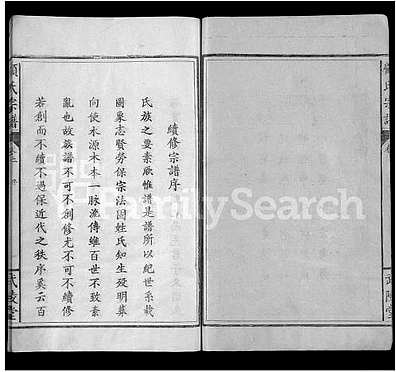 續修宗譜序
氏族之要素厥惟譜是譜所以紀世系載
圖象志賢勞保宗法因姓氏知生歿明葬
向使水源木本一脈流傳維百世不致紊
亂也故族譜不可不創修尤不可不續修
若創而不續不過保近代之秩序奚云百
顧氏宗譜
卷
武陵堂
FamilySearch